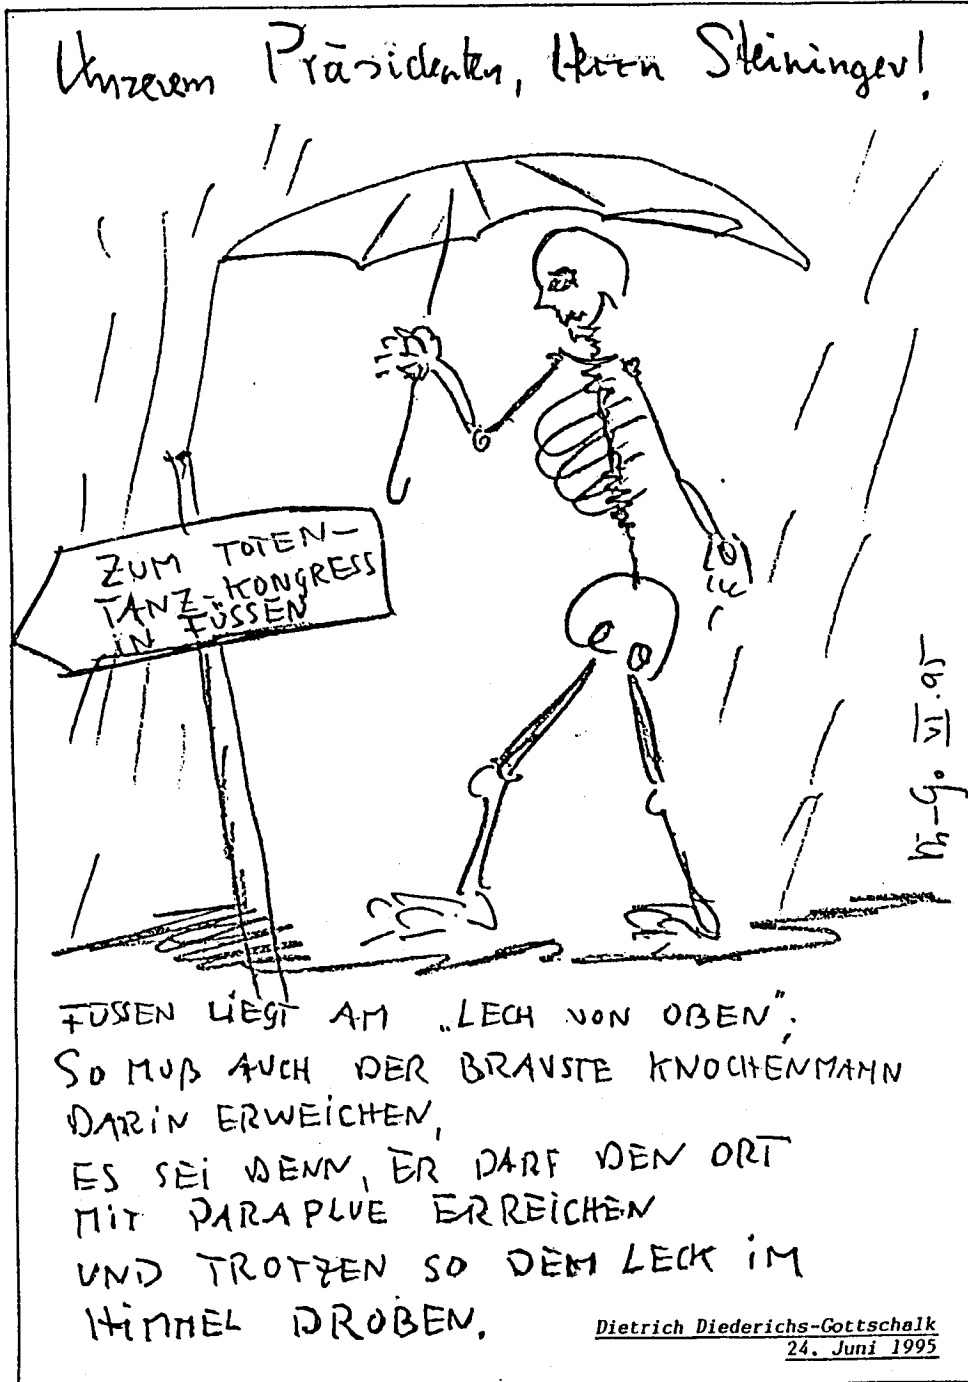 Unserem Präsidenten, Herrn Steininger!
ZUM TOTEN-
TANZ-KONGRESS
IN FÜSSEN
FÜSSEN LIEGT AM „LECH VON OBEN";
SO MUß AUCH DER BRAVSTE KNOCHENMANN
DARIN ERWEICHEN,
ES SEI DENN, ER DARF DEN ORT
MIT PARAPLUE ERREICHEN
UND TROTZEN SO DEM LECK IM
HIMMEL DROBEN.
VI.95
Dietrich Diederichs-Gottschalk
24. Juni 1995